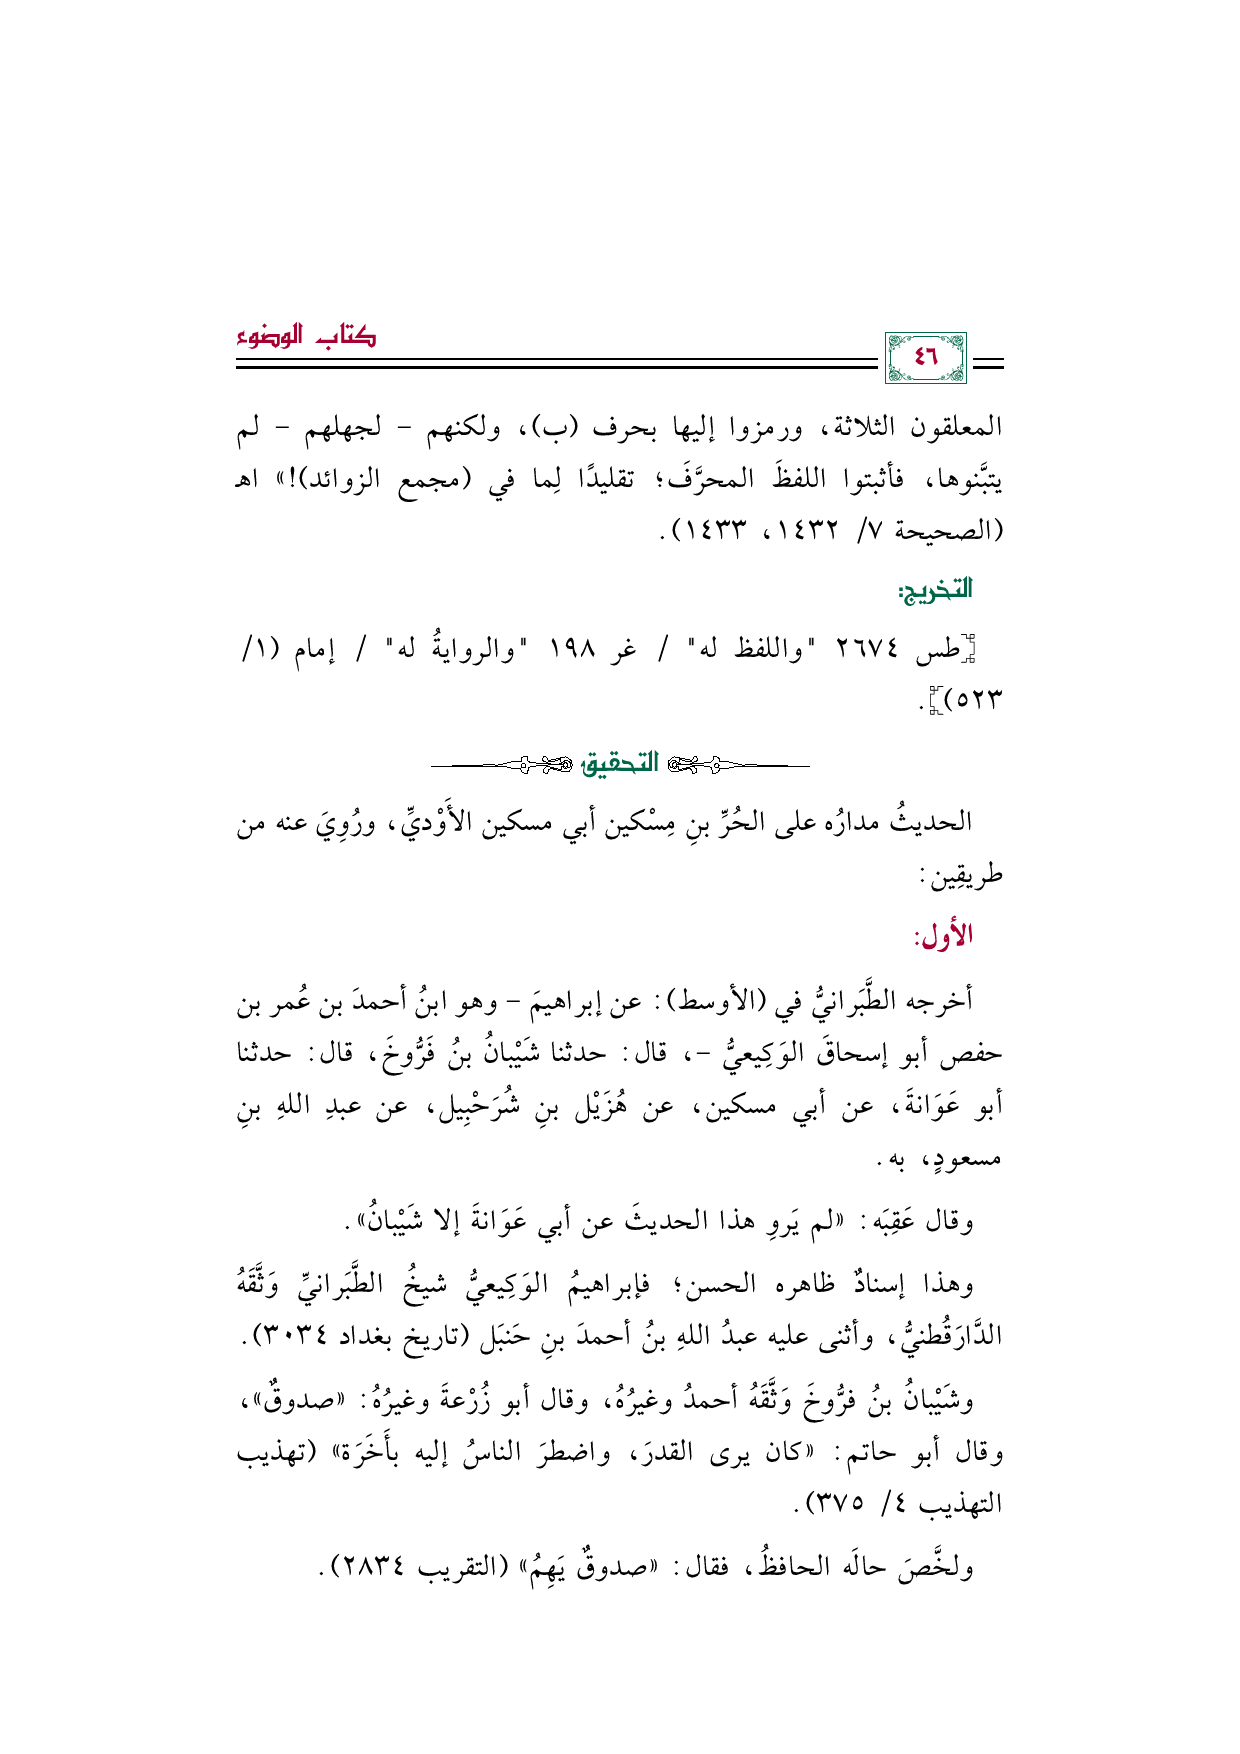 كتاب الوضوء
٤٦
المعلقون الثلاثة، ورمزوا إليها بحرف (ب)، ولكنهم – لجهلهم – لم
يتبَّنوها، فأثبتوا اللفظَ المحرَّفَ؛ تقليدًا لِما في (مجمع الزوائد)!» اهـ
(الصحيحة ٧/ ١٤٣٢، ١٤٣٣).
التخريج:
[طس ٢٦٧٤ "واللفظ له" / غر ١٩٨ "والروايةُ له" / إمام (١/
٥٢٣)].
التحقيق
الحديثُ مدارُه على الحُرِّ بنِ مِسْكين أبي مسكين الأَوْديِّ، ورُوِيَ عنه من
طريقِين:
الأول:
أخرجه الطَّبَرانيُّ في (الأوسط): عن إبراهيمَ – وهو ابنُ أحمدَ بن عُمر بن
حفص أبو إسحاقَ الوَكِيعيُّ –، قال: حدثنا شَيْبانُ بنُ فَرُّوخَ، قال: حدثنا
أبو عَوَانةَ، عن أبي مسكين، عن هُزَيْل بنِ شُرَحْبِيل، عن عبدِ اللهِ بنِ
مسعودٍ، به.
وقال عَقِبَه: «لم يَروِ هذا الحديثَ عن أبي عَوَانةَ إلا شَيْبانُ».
وهذا إسنادٌ ظاهره الحسن؛ فإبراهيمُ الوَكِيعيُّ شيخُ الطَّبَرانيِّ وَثَّقَهُ
الدَّارَقُطنيُّ، وأثنى عليه عبدُ اللهِ بنُ أحمدَ بنِ حَنبَل (تاريخ بغداد ٣٠٣٤).
وشَيْبانُ بنُ فرُّوخَ وَثَّقَهُ أحمدُ وغيرُهُ، وقال أبو زُرْعةَ وغيرُهُ: «صدوقٌ»،
وقال أبو حاتم: «كان يرى القدرَ، واضطرَ الناسُ إليه بأَخَرَة» (تهذيب
التهذيب ٤/ ٣٧٥).
ولخَّصَ حالَه الحافظُ، فقال: «صدوقٌ يَهِمُ» (التقريب ٢٨٣٤).